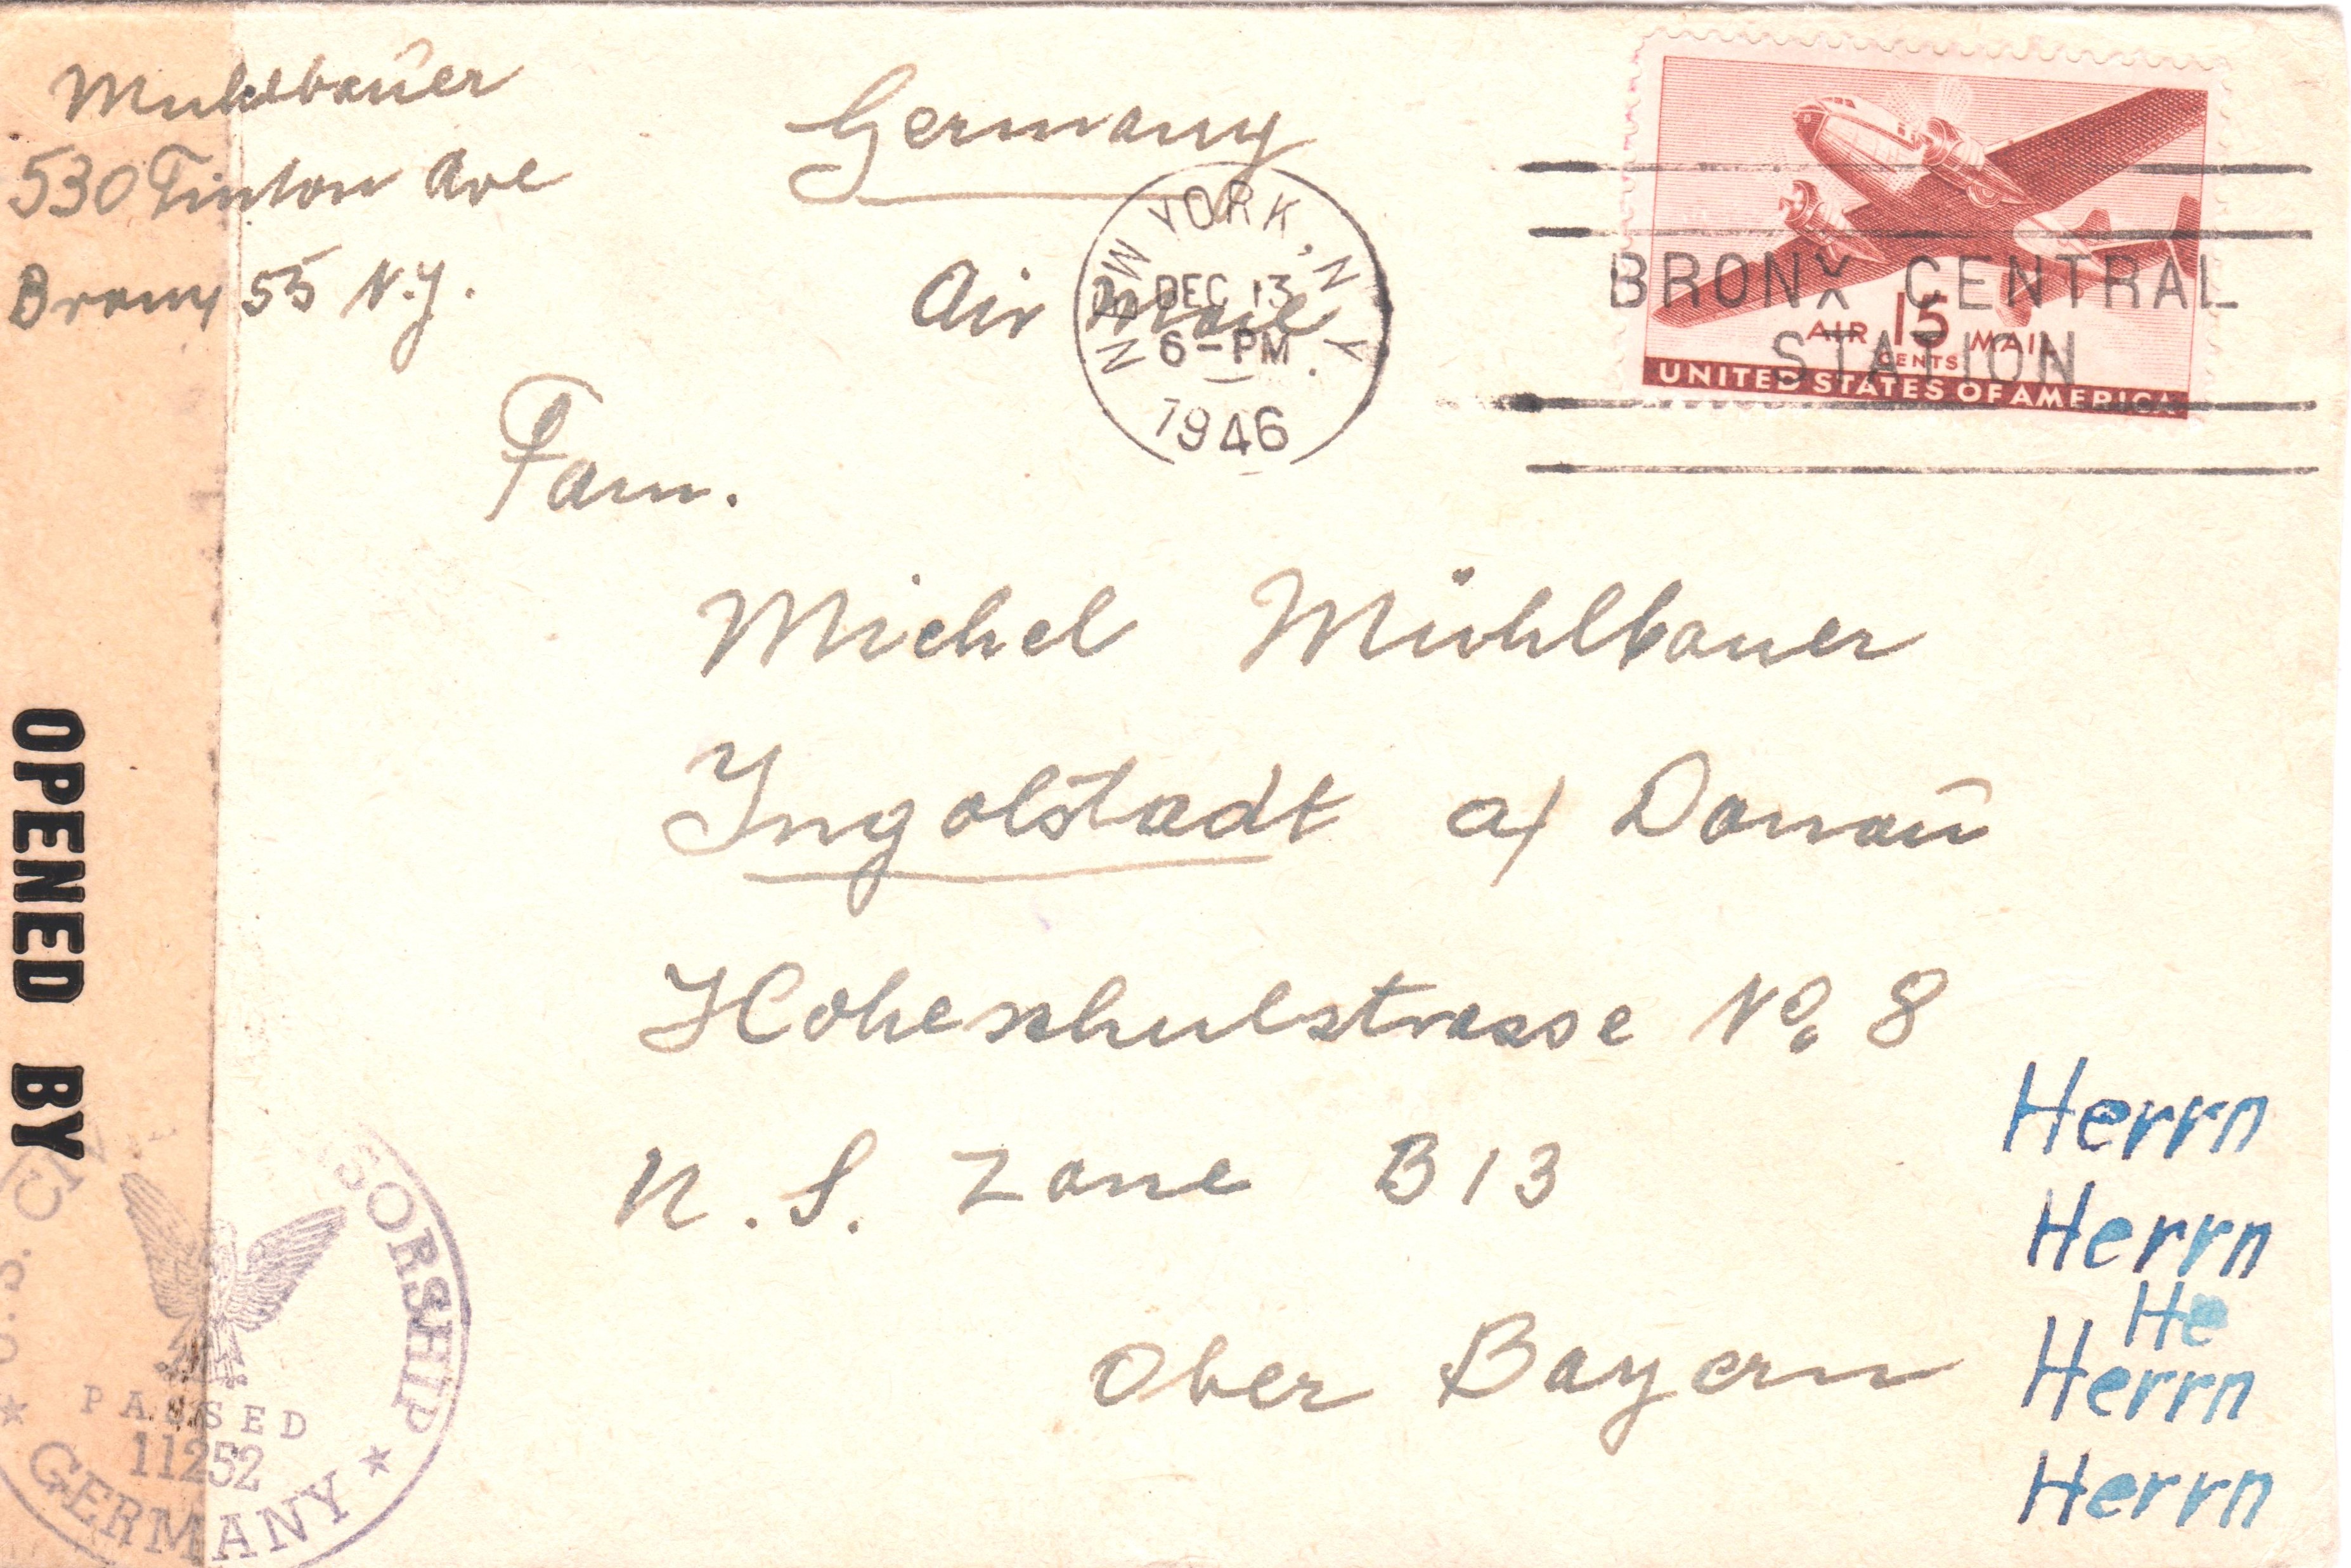 Muhlbauer
530 Tinton Ave
Bronx 55 N.Y.
Germany
Air Mail
NEW YORK, N.Y.
DEC 13
6-PM
1946
BRONX CENTRAL
STATION
15
AIR MAIL
CENTS
UNITED STATES OF AMERICA
Fam.
Michel Mühlbauer
Ingolstadt a/ Donau
Hoheschulstrasse No. 8
Zone B 13
Ober Bayern
Herrn
Herrn
He
Herrn
Herrn
OPENED BY
U.S. CIV SORSHIP
PASSED
11252
GERMANY